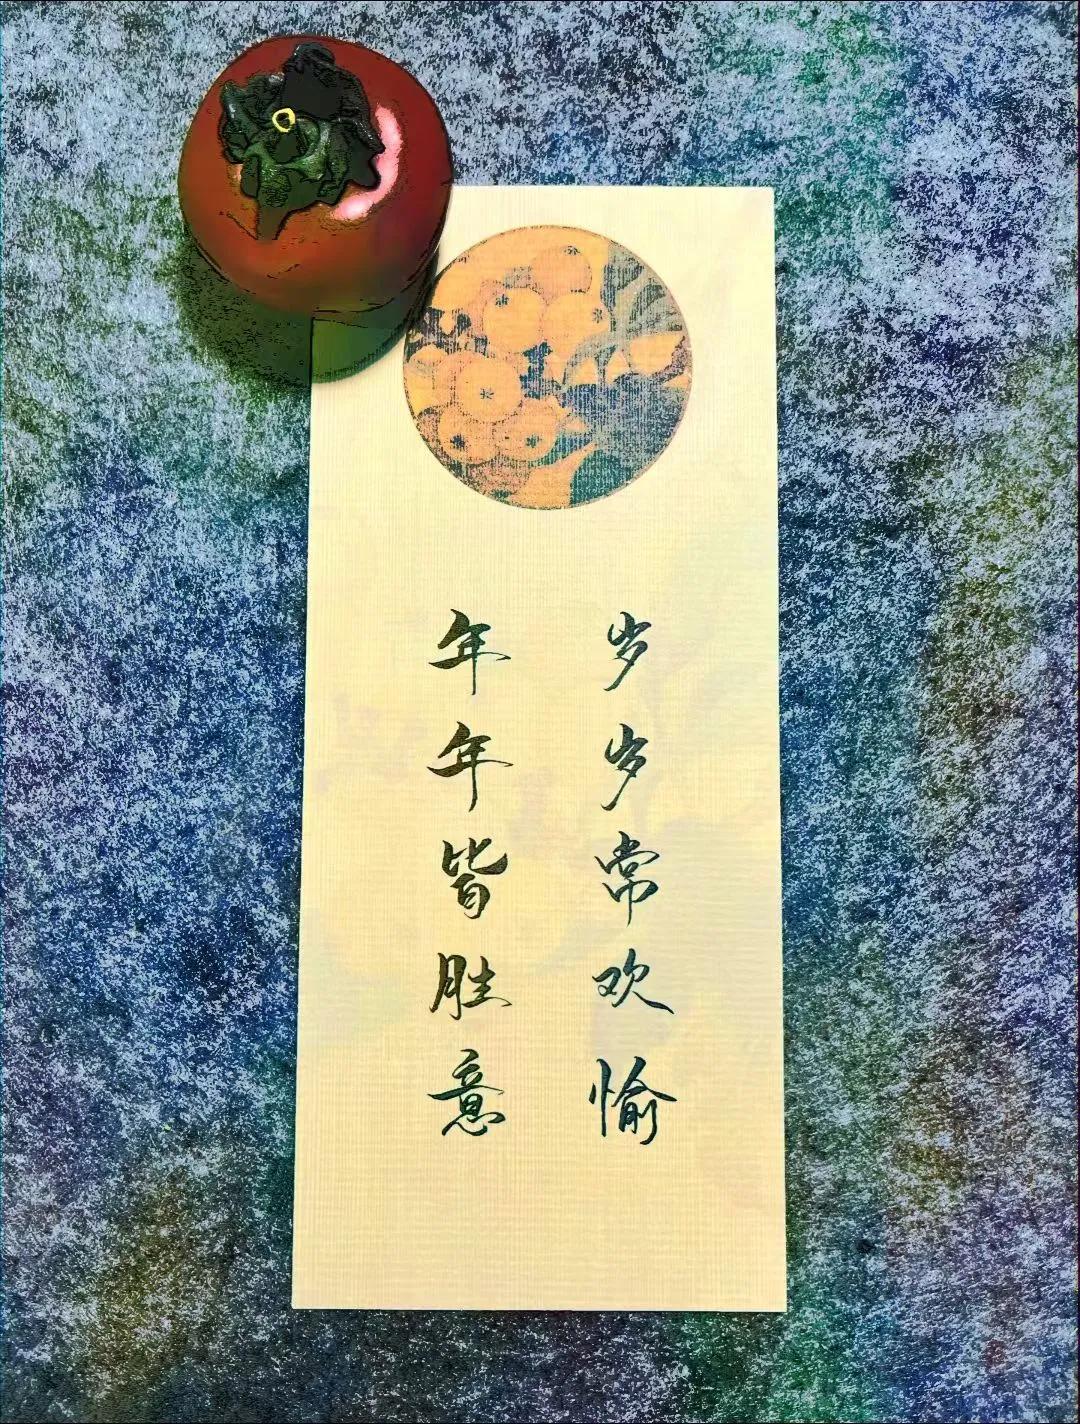 岁岁常欢愉
年年皆胜意